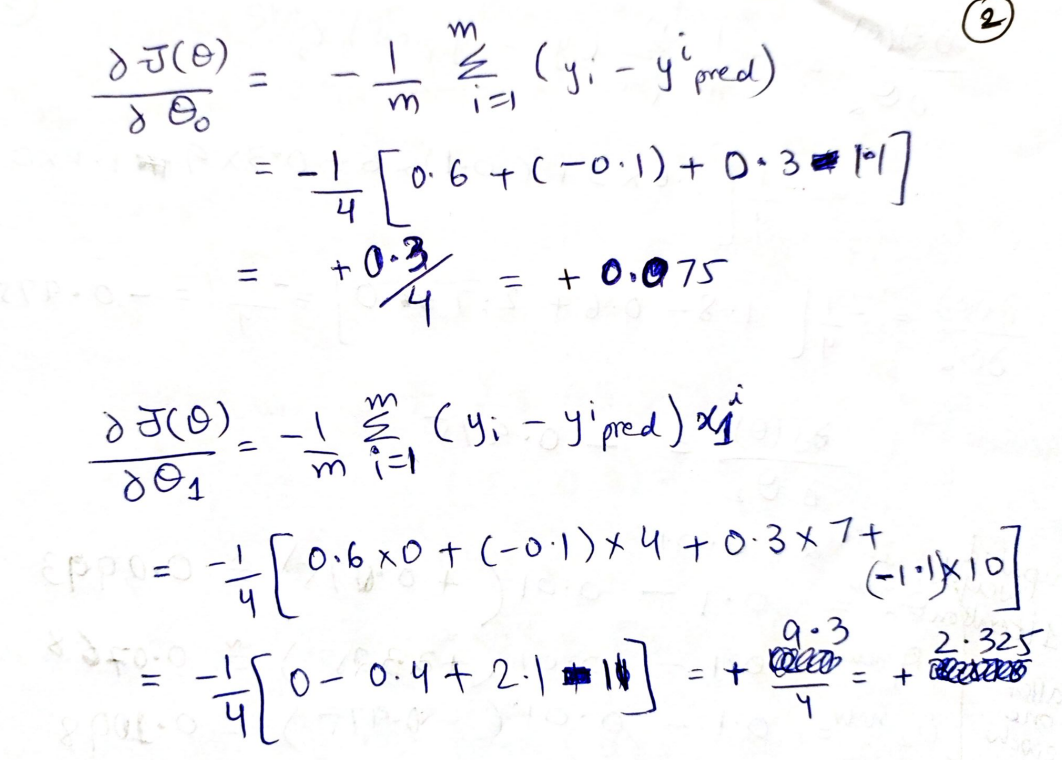 ②
∂J(θ)/∂θ₀ = -1/m Σ_{i=1}^{m} (yᵢ - yⁱpred)
= -1/4 [0.6 + (-0.1) + 0.3 - 1.1]
= +0.3/4 = +0.075
∂J(θ)/∂θ₁ = -1/m Σ_{i=1}^{m} (yᵢ - yⁱpred) x₁ⁱ
= -1/4 [0.6×0 + (-0.1)×4 + 0.3×7 + (-1.1)×10]
= -1/4 [0 - 0.4 + 2.1 - 11] = + 9.3/4 = + 2.325